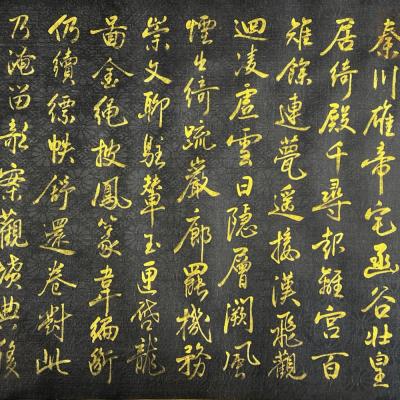 秦川雄帝宅函谷壯皇
居綺殿千尋起離宮百
雉餘連甍遙接漢飛觀
迴凌虛雲日隱層闕風
煙出綺疏巖廊罷機務
崇文聊駐輦玉匣啓龍
圖金繩披鳳篆韋編斷
仍續縹帙舒還卷對此
乃淹留欹案觀墳典後